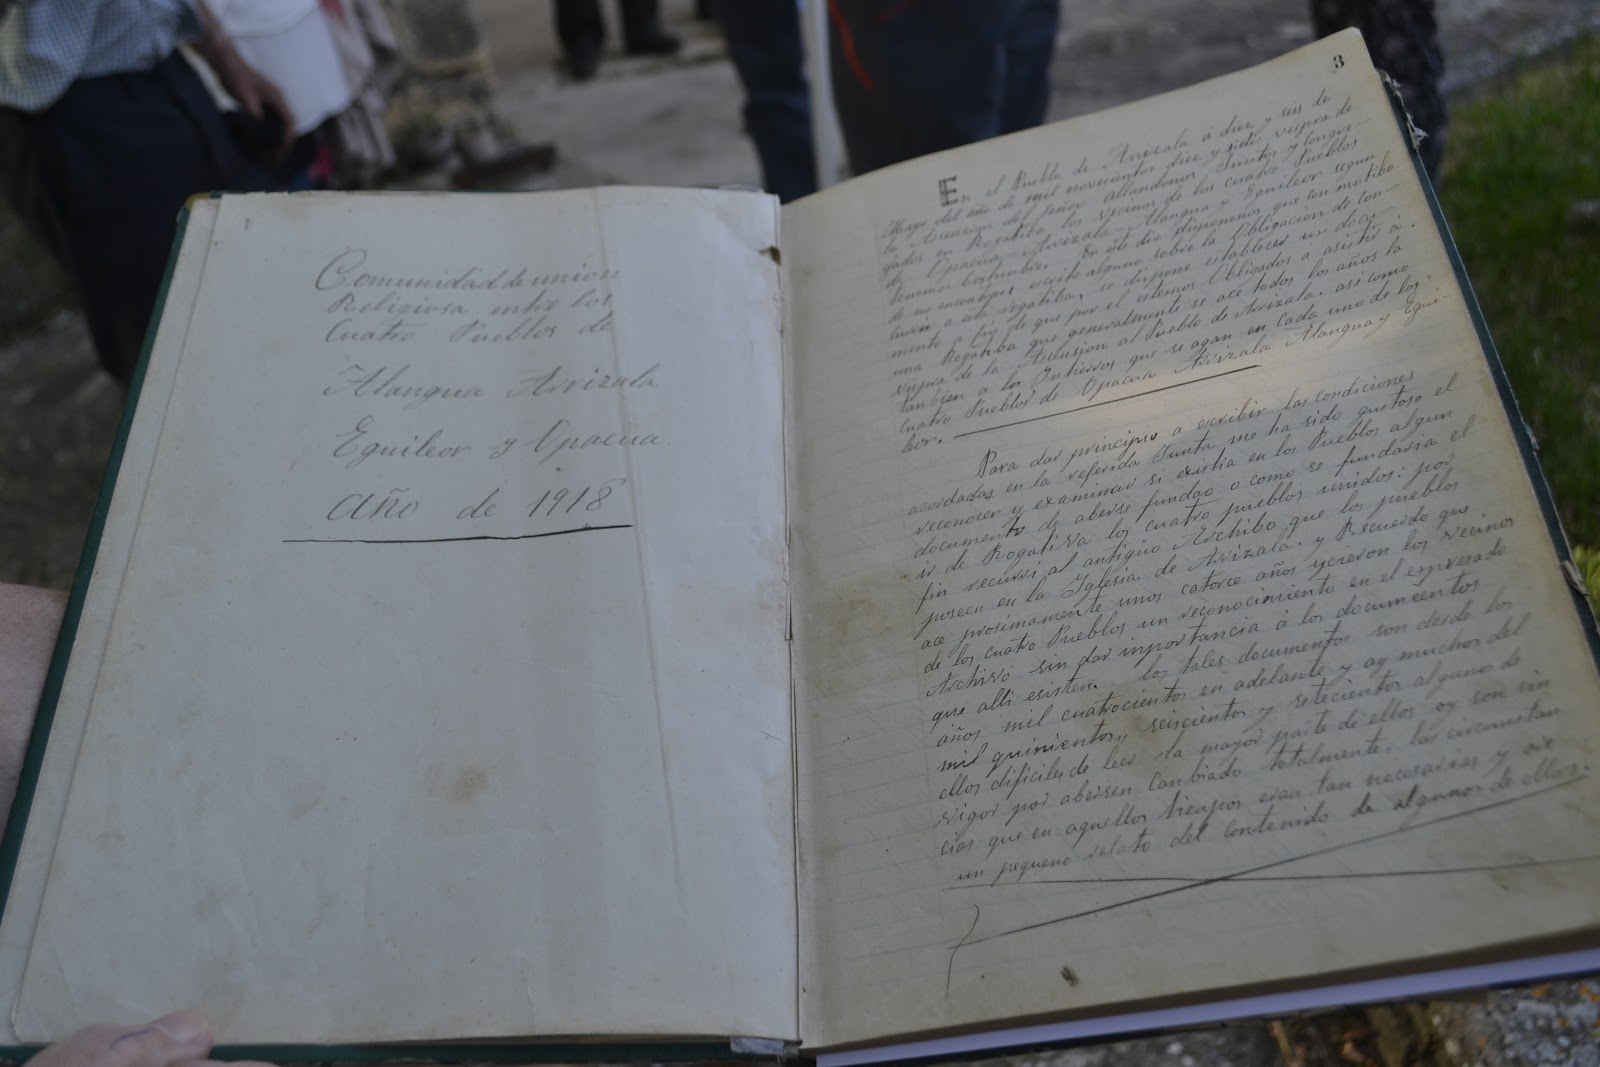 Comunidad de union
Religiosa entre los
Cuatro Pueblos de
Alangua Arrizala
Eguileor y Opacua.
Año de 1918
3
En el Pueblo de Arrizala á diez y seis de
Mayo del año de mil novecientos diez y siete vispra de
la Ascension del Señor allandonos Juntos y congre-
gados en Rogatiba los vecinos de los cuatro Pueblos
de Opacua - Arrizala - Alangua y Eguileor segun
tenemos Costumbre. En este dia disponemos que con motibo
de no encontrar escrito alguno sobre la Obligacion de con-
currir a esta rogatiba, se dispone establecer un docu-
mento a fin de que por el estemos Obligados a asistir á
una Rogatiba que generalmente se ace todos los años la
vispra de la Ascension al Pueblo de Arrizala. asi como
tanbien a los Intierros que se agan en Cada uno de los
Cuatro Pueblos de Opacua Arrizala Alangua y Egui-
leor.
Para dar principio a escribir las condiciones
acordadas en la referida Junta me ha sido gustoso el
reconocer y examinar si existia en los Pueblos algun
documento de aberse fundao o como se fundaria el
ir de Rogativa los cuatro pueblos unidos: por
fin recurri al antiguo Archibo que los pueblos
poseen en la Iglesia de Arrizala. y Recuerdo que
ace prosimamente unos catorce años ycieron los vecinos
de los cuatro Pueblos un reconocimiento en el espresado
Archivo sin dar inportancia á los documentos
que alli esisten. los tales documentos son desde los
años mil cuatrocientos en adelante y ay muchos del
mil quinientos, seiscientos y setecientos algunos de
ellos dificiles de leer la mayor parte de ellos oy son sin
vigor por abersen canbiado totalmente. las circunstan
cias que en aquellos tienpos eran tan necesarias y
un pequeno relato del contenido de algunos de ellos.